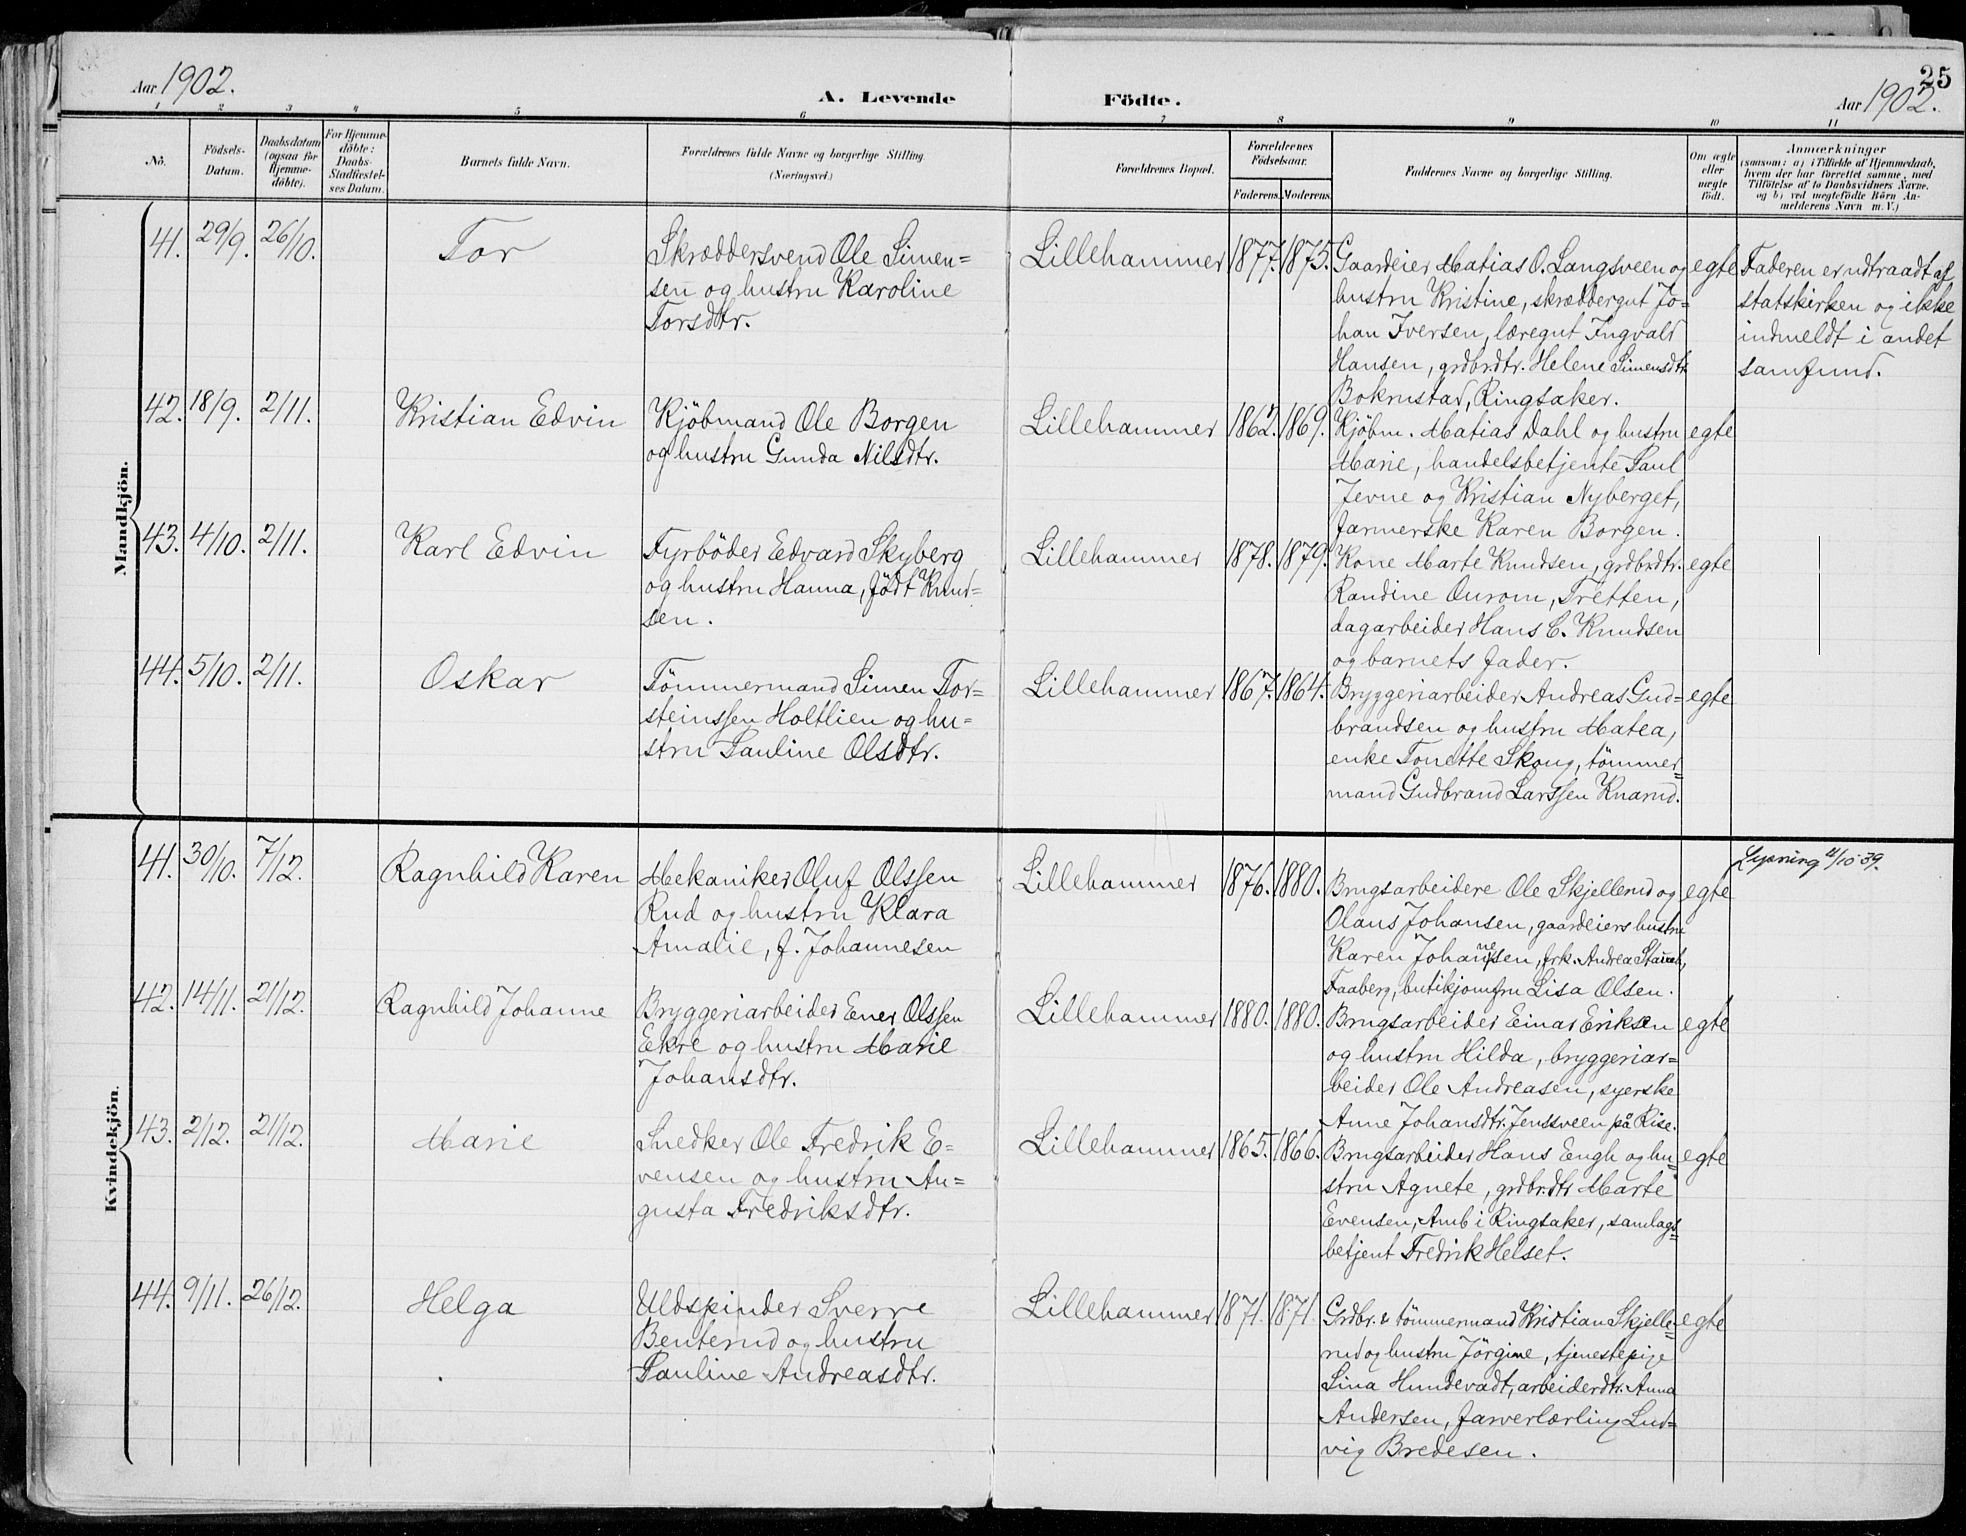 25
Aar 1902.
A. Levende Födte.
Aar 1902.
1 2 3 4 5 6 7 8 9 10 11
No.
Födsels-
Datum.
Daabsdatum
(ogsaa for
Hjemme-
döbte).
For Hjemme-
döbte:
Daabs-
Stadfæstel-
ses Datum.
Barnets fulde Navn.
Forældrenes fulde Navne og borgerlige Stilling
(Næringsvei.)
Forældrenes Bopæl.
Forældrenes
Födselsaar.
Faderens. Moderens.
Faddernes Navne og borgerlige Stilling.
Om ægte
eller
uægte
födt.
Anmærkninger
(saasom: a) i Tilfælde af Hjemmedaab,
hvem der har forrettet samme, med
Tilföielse af to Daabsvidners Navne,
og b) ved uegtefödte Börn An-
melderens Navn m. V.)
Mandkjön.
41. 29/9. 26/10. Tor
Skræddersvend Ole Simen=
sen og hustru Karoline
Torsdtr.
Lillehammer 1877. 1875.
Gaardeier Matias O. Langsveen og
hustru Kristine, skræddergut Jo=
han Iversen, læregut Ingvald
Hansen, grdbr.dtr. Helene Simensdtr.
Bokrustad, Ringsaker.
egte
Faderen er udtraadt af
statskirken og ikke
indmeldt i andet
samfund.
42. 18/9. 2/11. Kristian Edvin
Kjöbmand Ole Borgen
og hustru Gunda Nilsdtr.
Lillehammer 1862. 1869.
Kjöbm. Matias Dahl og hustru
Marie, handelsbetjente Paul
Jevne og Kristian Nyberget,
farmerske Karen Borgen.
egte
43. 4/10. 2/11. Karl Edvin
Fyrböder Edvard Skyberg
og hustru Hanna, födt Knud=
sen.
Lillehammer 1878. 1879.
Kone Marte Knudsen, grdbr.dtr.
Randine Aurom, Tretten,
dagarbeider Hans C. Knudsen
og barnets fader.
egte
44. 5/10. 2/11. Oskar
Tömmermand Simen Tor=
steinssen Holtlien og hu=
stru Pauline Olsdtr.
Lillehammer 1867. 1864.
Bryggeriarbeider Andreas Gud=
brandsen og hustru Matea,
enke Tonette Skoug, tömmer=
mand Gudbrand Larssen Knarud.
egte
Kvindekjön.
41. 30/10. 7/12. Ragnhild Karen
Mekaniker Oluf Olssen
Rud og hustru Klara
Amalie, f. Johannesen
Lillehammer 1876. 1880.
Brugsarbeidere Ole Skjellerud og
Olaus Johansen, gaardeiers hustru
Karen Johannesen, frk. Andrea
Faaberg, butikjomfru Lisa Olsen.
egte
Lysning /10-39.
42. 14/11. 21/12. Ragnhild Johanne
Bryggeriarbeider Ener Olssen
Ekre og hustru Marie
Johansdtr.
Lillehammer 1880. 1880.
Brugsarbeider Einar Eriksen
og hustru Hilda, bryggeriar=
beider Ole Andreasen, syerske
Anne Johansdtr. Jenssveen på Rise.
egte
43. 2/12. 21/12. Marie
Snedker Ole Fredrik E=
vensen og hustru Au=
gusta Fredriksdtr.
Lillehammer 1865. 1866.
Brugsarbeider Hans Engh og hu=
stru Agnete, grdbr.dtr Marte
Evensen, Amb i Ringsaker, samlags=
betjent Fredrik Helset.
egte
44. 9/11. 26/12. Helga
Uldspinder Sverre
Benterud og hustru
Pauline Andreasdtr.
Lillehammer 1871. 1871.
Grdbr. & tömmermand Kristian Skjelle=
rud og hustru Jörgine, tjenestepige
Lina Hundevadt, arbeiderdtr. Anna
Andersen, farverlærling Lud=
vig Bredesen.
egte